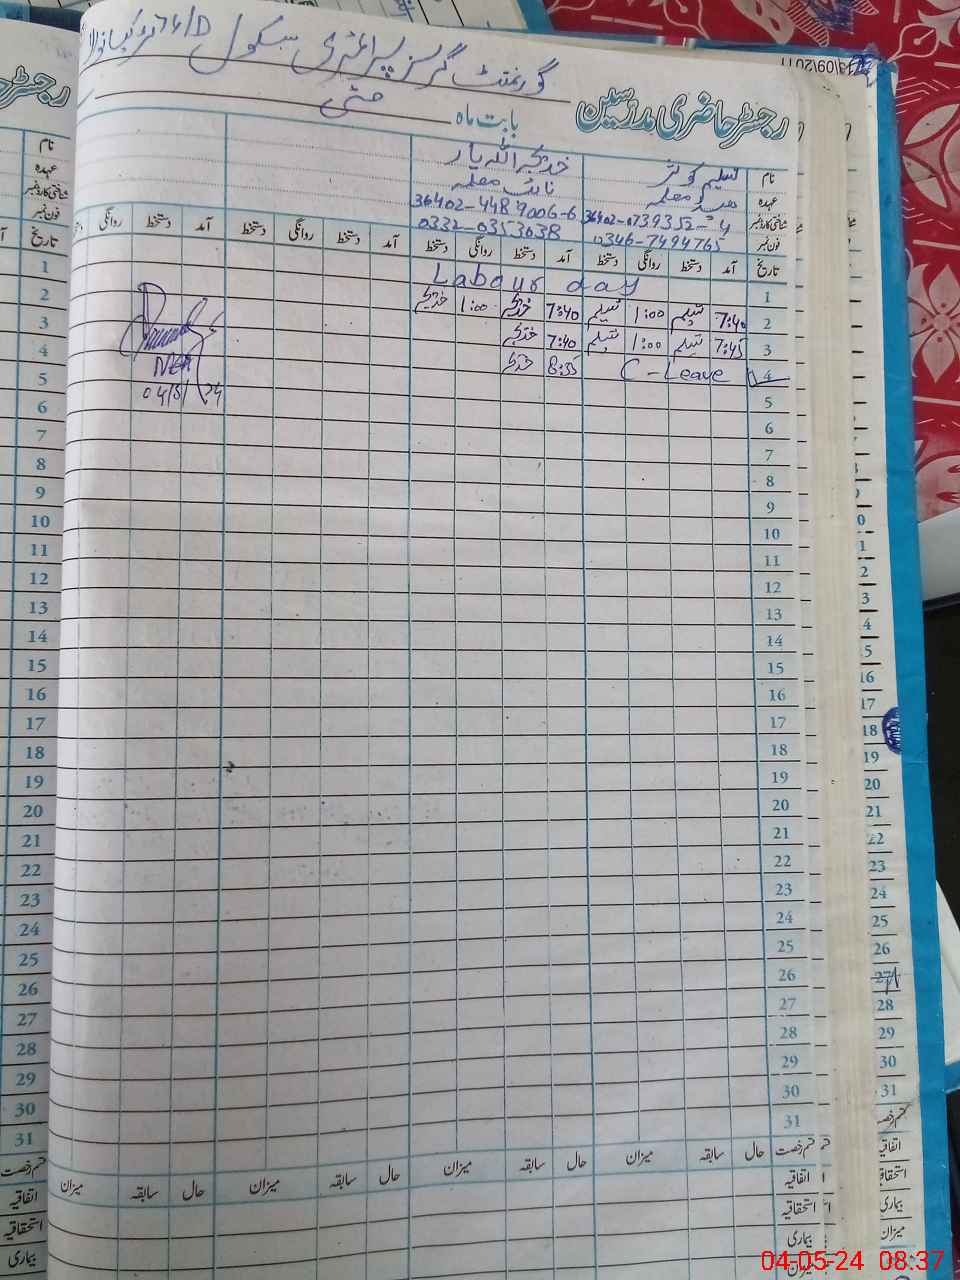 گورنمنٹ گرلز پرائمری سکول 76/D
رجسٹر حاضری مدرسین
بابت ماہ مئی
نام نسیم کوثر خدیجہ اللہ یار
عہدہ ہیڈ معلمہ نائب معلمہ
شناختی کارڈ نمبر 36402-0739352-4 36402-4489006-6
فون نمبر 0346-7494765 0332-0353038
تاریخ آمد دستخط روانگی دستخط آمد دستخط روانگی دستخط آمد دستخط روانگی دستخط آمد دستخط روانگی
1 Labour day
2 7:40 نسیم 1:00 نسیم 7:40 خدیجہ 1:00 خدیجہ
3 7:45 نسیم 1:00 نسیم 7:40 خدیجہ
4 C-Leave 8:35 خدیجہ
5
6
7
8
9
10
11
12
13
14
15
16
17
18
19
20
21
22
23
24
25
26
27
28
29
30
31
قسم رخصت حال سابقہ میزان حال سابقہ میزان حال سابقہ میزان حال سابقہ میزان
اتفاقیہ
استحقاقیہ
بیماری
میزان
04/5/24
رجسٹر
نام
عہدہ
شناختی کارڈ نمبر
فون نمبر
تاریخ
1
2
3
4
5
6
7
8
9
10
11
12
13
14
15
16
17
18
19
20
21
22
23
24
25
26
27
28
29
30
31
قسم رخصت
اتفاقیہ
استحقاقیہ
بیماری
16
17
18
19
20
21
22
23
24
25
26
27
28
29
30
31
اتفاقیہ
بیماری
میزان
04-05-24 08:37